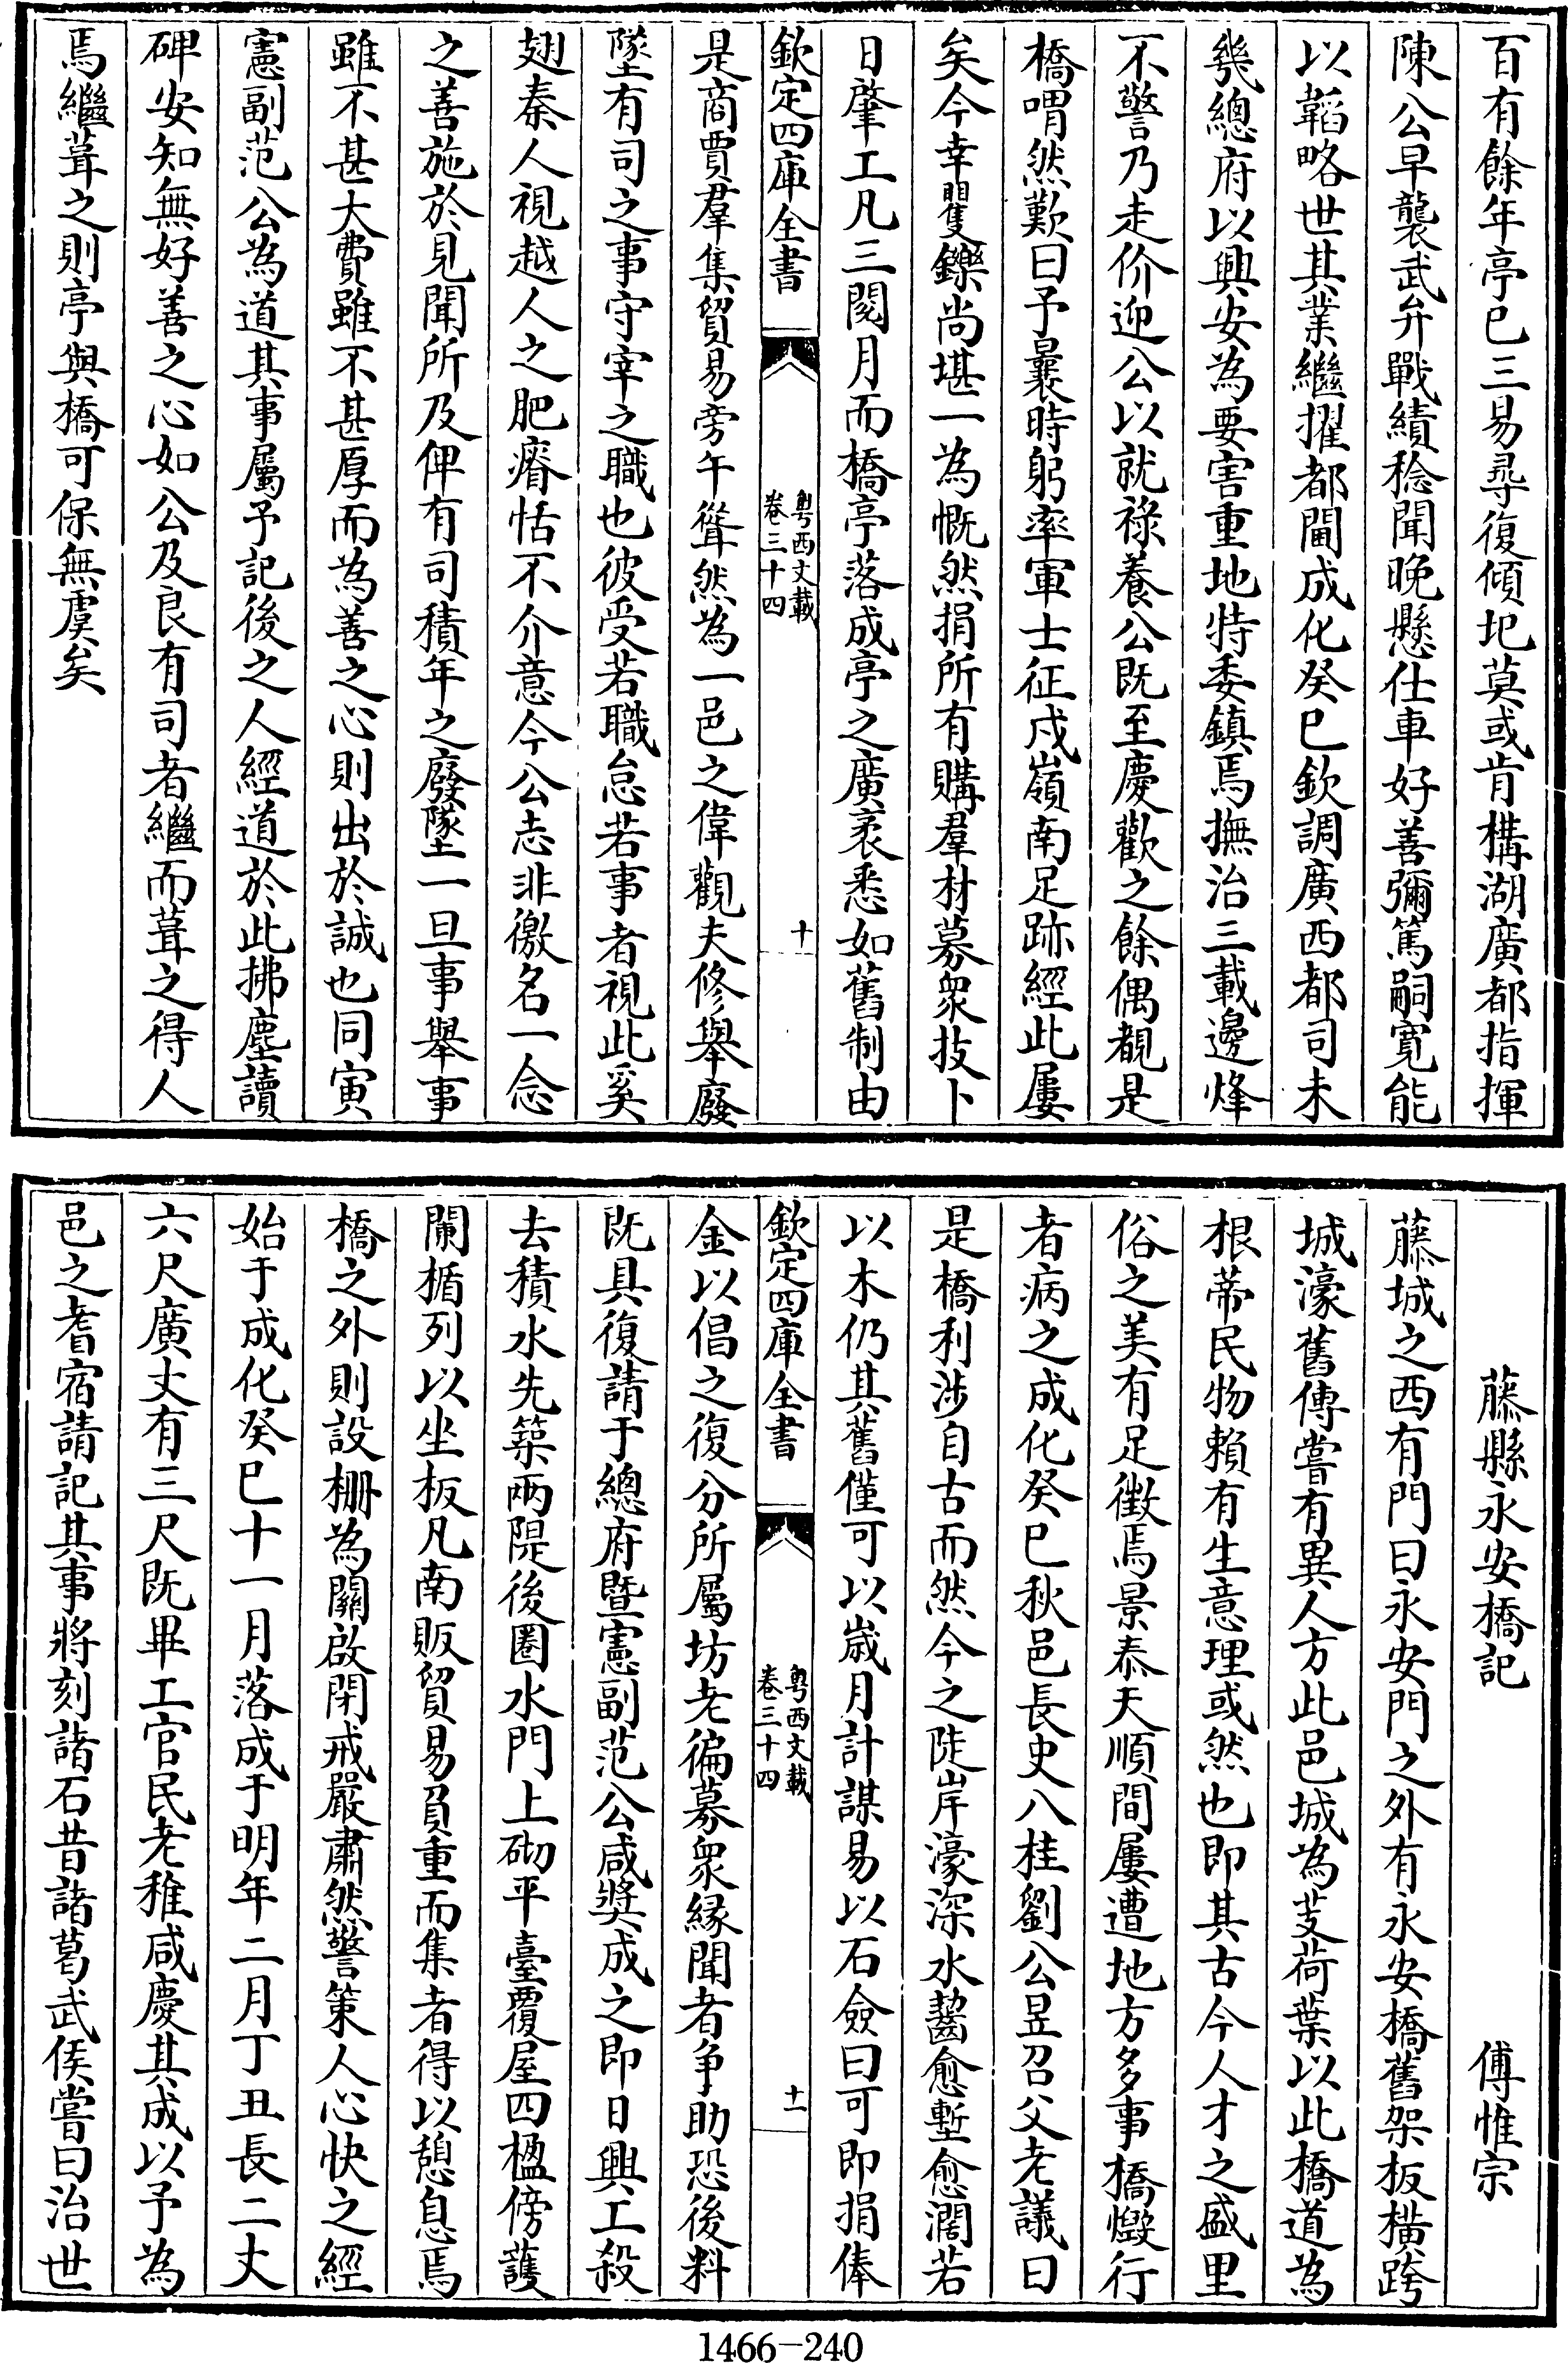 百有餘年亭已三易尋復傾圮莫或肯構湖廣都指揮
陳公早襲武弁戰績稔聞晚懸仕車好善彌篤嗣寛能
以韜略世其業繼擢都閫成化癸巳欽調廣西都司未
幾總府以興安為要害重地特委鎮焉撫治三載邊烽
不警乃走价迎公以就祿養公既至慶歡之餘偶覩是
橋喟然歎曰予曩時躬率軍士征戍嶺南足跡經此屢
矣今幸矍鑠尚堪一為慨然捐所有購羣材募衆技卜
日肇工凡三閱月而橋亭落成亭之廣袤悉如舊制由
欽定四庫全書
粤西文載
卷三十四
十
是商賈羣集貿易旁午聳然為一邑之偉觀夫修舉廢
墜有司之事守宰之職也彼受若職怠若事者視此奚
翅秦人視越人之肥瘠恬不介意今公志非徼名一念
之善施於見聞所及俾有司積年之廢墜一旦事舉事
雖不甚大費雖不甚厚而為善之心則出於誠也同寅
憲副范公為道其事屬予記後之人經道於此拂塵讀
碑安知無好善之心如公及良有司者繼而葺之得人
焉繼葺之則亭與橋可保無虞矣
藤縣永安橋記
傅惟宗
藤城之西有門曰永安門之外有永安橋舊架板横跨
城濠舊傳嘗有異人方此邑城為芰荷葉以此橋道為
根蒂民物賴有生意理或然也即其古今人才之盛里
俗之美有足徵焉景泰天順間屢遭地方多事橋燬行
者病之成化癸巳秋邑長史八桂劉公昱召父老議曰
是橋利涉自古而然今之陡岸濠深水齧愈塹愈濶若
以木仍其舊僅可以歲月計謀易以石僉曰可即捐俸
欽定四庫全書
粤西文載
卷三十四
十一
金以倡之復分所屬坊老徧募衆縁聞者爭助恐後料
既具復請于總府暨憲副范公咸奬成之即日興工殺
去積水先築兩隄後圏水門上砌平臺覆屋四楹傍護
闌楯列以坐板凡南販貿易負重而集者得以憩息焉
橋之外則設栅為關啟閉戒嚴肅然警策人心快之經
始于成化癸巳十一月落成于明年二月丁丑長二丈
六尺廣丈有三尺既畢工官民老稚咸慶其成以予為
邑之耆宿請記其事將刻諸石昔諸葛武侯嘗曰治世
1466-240